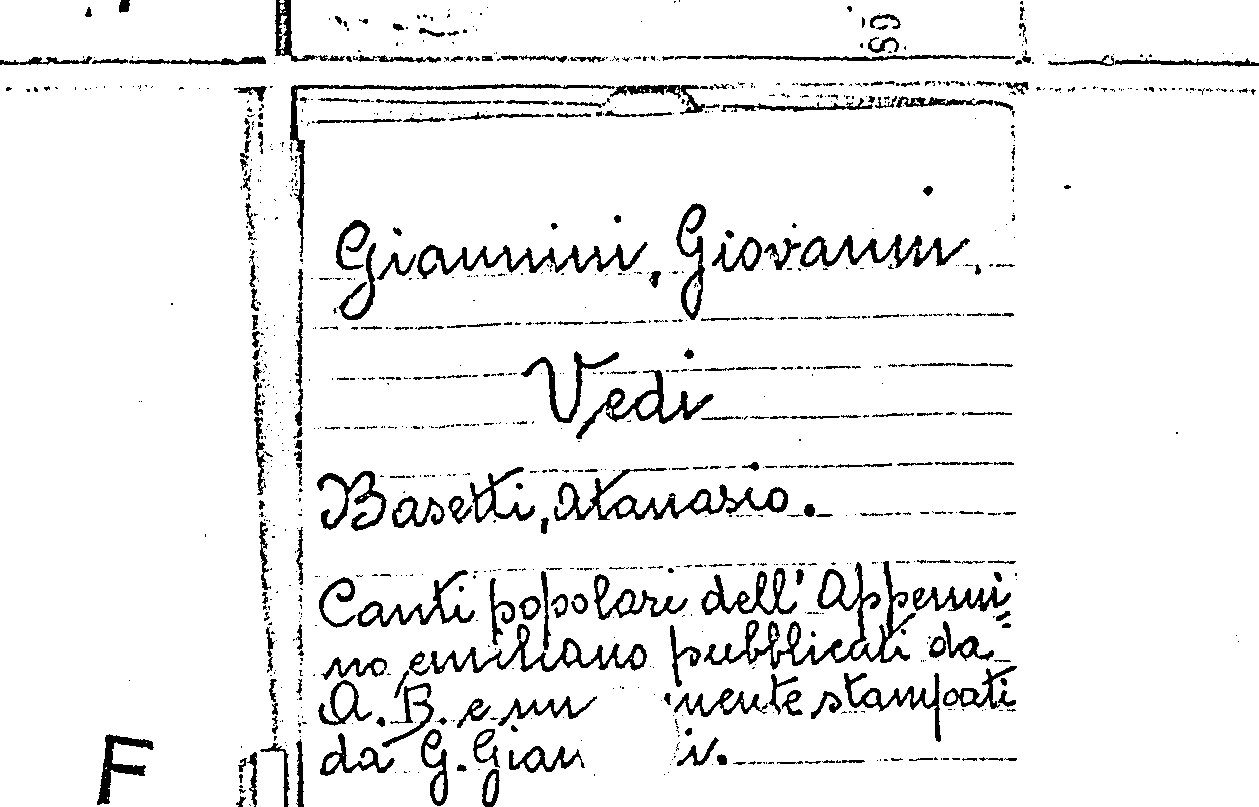 Giannini, Giovanni.
Vedi
Basetti, Atanasio.
Canti popolari dell'Appenni=
no emiliano pubblicati da
A. B. e mente stampati
da G. Gian i.
F